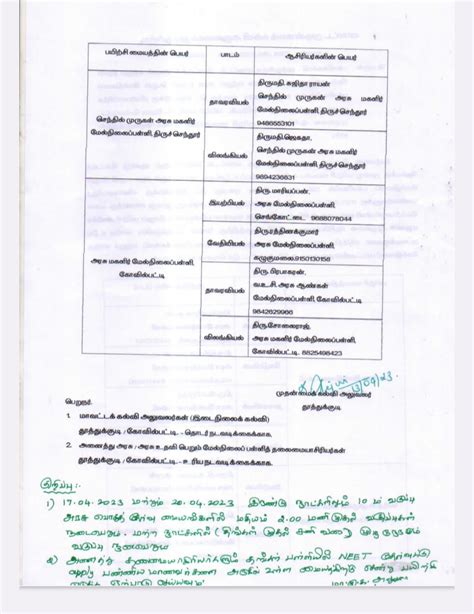 பயிற்சி மையத்தின் பெயர் பாடம் ஆசிரியர்களின் பெயர்
செந்தில் முருகன் அரசு மகளிர் மேல்நிலைப்பள்ளி, திருச்செந்தூர்
தாவரவியல்
திருமதி.சுஜிதா ராயன்
செந்தில் முருகன் அரசு மகளிர்
மேல்நிலைப்பள்ளி, திருச்செந்தூர்
விலங்கியல்
திருமதி.ஜெகதா,
செந்தில் முருகன் அரசு மகளிர்
மேல்நிலைப்பள்ளி, திருச்செந்தூர்
9894236631
அரசு மகளிர் மேல்நிலைப்பள்ளி, கோவில்பட்டி
இயற்பியல்
திரு.மாரியப்பன்,
அரசு மேல்நிலைப்பள்ளி,
செங்கோட்டை 9688078044
வேதியியல்
திருரத்தினக்குமார்
அரசு மேல்நிலைப்பள்ளி,
கழுகுமலை.9150130156
தாவரவியல்
திரு.பிரபாகரன்,
வ.உ.சி. அரசு ஆண்கள்
மேல்நிலைப்பள்ளி, கோவில்பட்டி
9842629966
விலங்கியல்
திரு.சோலைராஜ்,
அரசு மகளிர் மேல்நிலைப்பள்ளி,
கோவில்பட்டி. 8825498423
முதன்மை கல்வி அலுவலர்
தூத்துக்குடி
பெறுநர்:
1. மாவட்டக் கல்வி அலுவலர்கள் (இடைநிலைக் கல்வி)
தூத்துக்குடி / கோவில்பட்டி. - தொடர் நடவடிக்கைக்காக.
2. அனைத்து அரசு / அரசு உதவி பெறும் மேல்நிலைப்பள்ளித் தலைமையாசிரியர்கள்
தூத்துக்குடி / கோவில்பட்டி - உரிய நடவடிக்கைக்காக.
குறிப்பு :-
1) 17.04.2023 மற்றும் 20.04.2023 இரண்டு நாட்களிலும் 10 ம் வகுப்பு
அரசு பொதுத் தேர்வு மையங்களில் மதியம் 2.00 மணி முதல் வகுப்புகள்
நடைபெறும். மற்ற நாட்களில் (திங்கள் முதல் சனி வரை) முழு நேரமும்
வகுப்பு நடைபெறும்
2) அனைத்து தலைமையாசிரியர்களும் தங்கள் பள்ளியில் NEET தேர்வுக்கு
apply பண்ணிய மாணவர்களை அருகில் உள்ள மையத்திற்கு